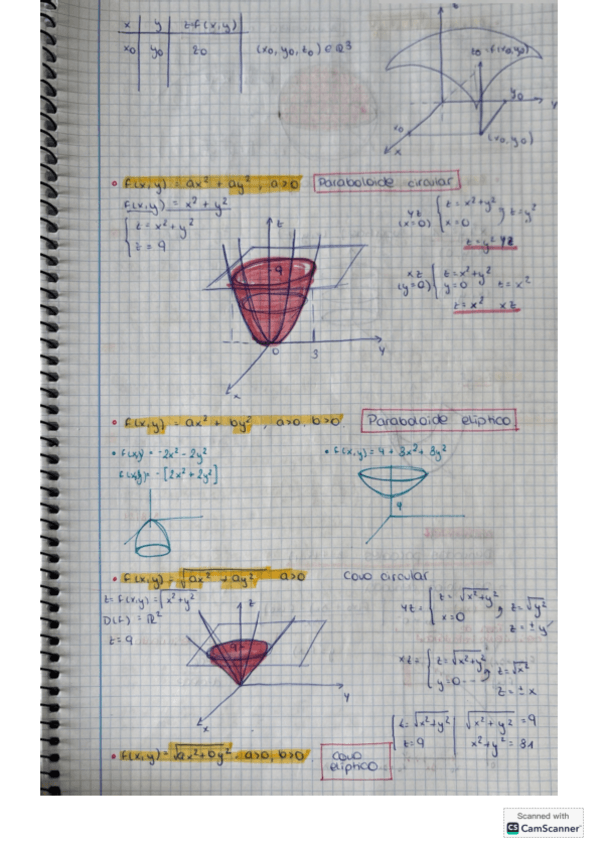 x y z=f(x,y)
x0 y0 z0 (x0, y0, z0) ∈ R3
z0=f(x0,y0)
y0
x0
(x0, y0)
x
y
• f(x,y) = ax² + ay², a>0 Paraboloide circular
f(x,y) = x² + y²
{ z = x² + y²
z = 9
z
9
0
3
y
x
yz (x=0) { z = x²+y², z=y²
x=0
z=y² yz
xz (y=0) { z=x²+y²
y=0 z=x²
z=x² xz
• f(x,y) = ax² + by², a>0, b>0. Paraboloide eliptico
• f(x,y) = -2x² - 2y²
f(x,y) = -[2x² + 2y²]
• f(x,y) = 4 + 3x² + 3y²
• f(x,y) = √ax² + ay² a>0 cono circular
z = f(x,y) = √x² + y²
D(f) = R²
z=9
z
y
x
yz = { z = √x²+y², z=√y²
x=0 z = ± y
xz = { z=√x²+y², z=√x²
y=0 z = ± x
{ z=√x²+y² √x² + y² = 9
z=9 x²+y² = 81
• f(x,y) = √ax²+by², a>0, b>0 cono eliptico
Scanned with
CS CamScanner